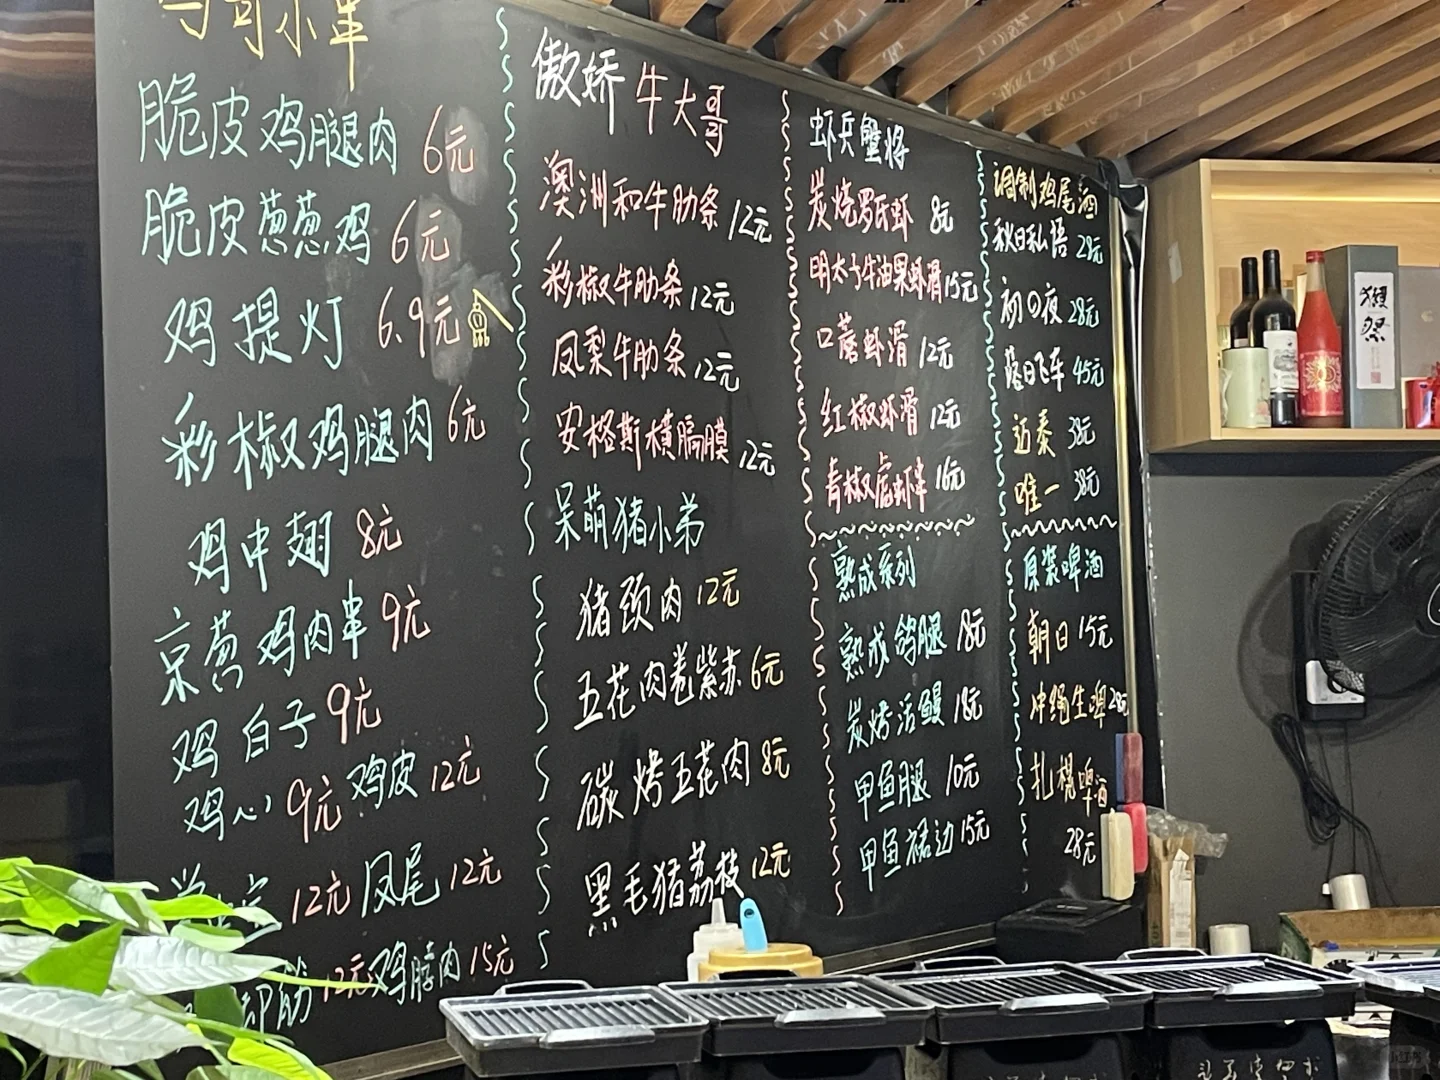 小串
脆皮鸡腿肉 6元
脆皮葱葱鸡 6元
鸡提灯 6.9元
彩椒鸡腿肉 6元
鸡中翅 8元
京葱鸡肉串 9元
鸡白子 9元
鸡心 9元 鸡皮 12元
12元 凤尾 12元
12元 鸡脖肉 15元
傲娇牛大哥
澳洲和牛肋条 12元
彩椒牛肋条 12元
凤梨牛肋条 12元
安格斯横膈膜 12元
呆萌猪小弟
猪颈肉 12元
五花肉卷紫苏 6元
碳烤五花肉 8元
黑毛猪荔枝 12元
虾兵蟹将
炭烧罗氏虾 8元
明太子牛油果虾滑 15元
口蘑虾滑 12元
红椒虾滑 12元
青椒虎虾串 16元
熟成系列
熟成鸽腿 18元
炭烤活鳗 18元
甲鱼腿 10元
甲鱼裙边 15元
调制鸡尾酒
秋日私语 28元
初の夜 28元
落日飞车 45元
近泰 38元
唯一 38元
原浆啤酒
朝日 15元
冲绳生啤 28元
扎幌啤酒
28元
獭祭